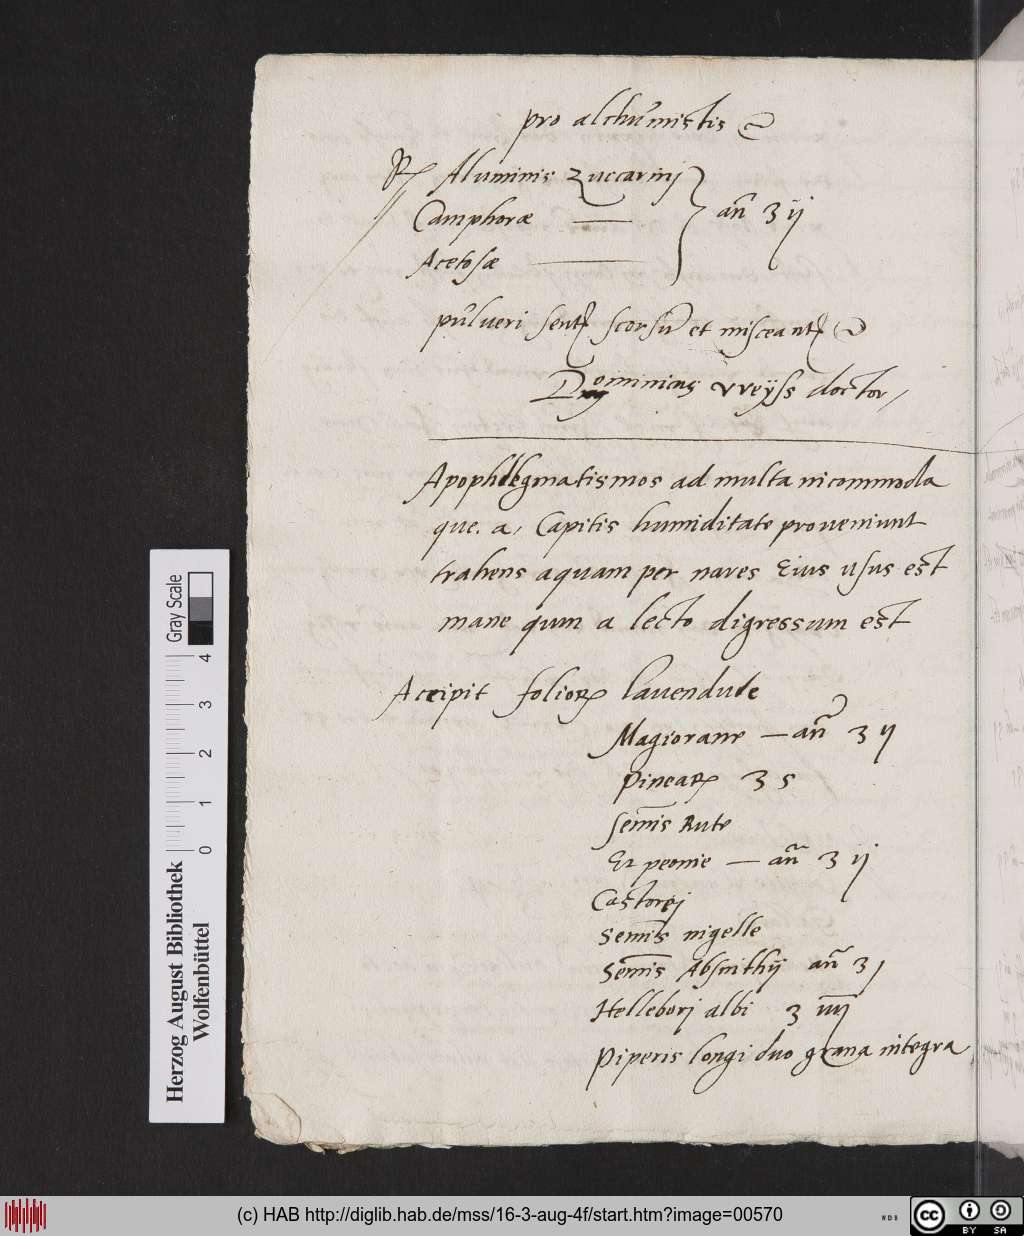 pro alchumistis
℞ Aluminis Zuccarinj
Camphoræ — añ ʒ ij
Acetosæ —
pulueri sent seorsū et misceant
Dominicus vveyss doctor
Apophlegmatismos ad multa incommoda
que. a, Capitis humiditate proveniunt
trahens aquam per nares Eius usus est
mane qum a lecto digressum est
Accipit folioꝝ lauendule
Magiorane — añ ʒ ij
pineaꝝ ʒ s
semīs Rute
Et peonie — añ ʒ ij
Castorej
semīs nigelle
semīs Absinthij añ ʒ j
Hellebori albi ʒ iiij
Piperis longi duo grana integra
Herzog August Bibliothek
Wolfenbüttel
0 1 2 3 4
Gray Scale
(c) HAB http://diglib.hab.de/mss/16-3-aug-4f/start.htm?image=00570
WDB
cc BY SA